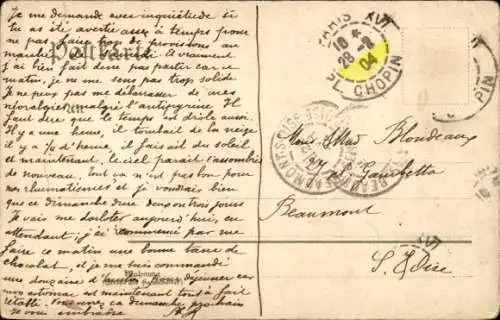 Je me demande avec inquiétude si
tu as été avertie assez à temps pour
ne pas faire trop de provisions au
marché de Samedi. A vraiment
j'ai bien fait de ne pas partir car ce
matin, je ne me sens pas trop solide
Je ne peux pas me débarrasser de mes
névralgies malgré l'antipyrine. Il
faut dire que le temps est drôle aussi.
Il y a une heure, il tombait de la neige
il y a 1/2 d'heure, il fait du soleil
et maintenant, le ciel parait s'assombrir
de nouveau. Tout ça n'est pas bon pour
nos rhumatismes et je voudrais bien
que ce dimanche dure trois jours
Je vais me dorloter aujourd'hui, en
attendant; j'ai commencé par me
faire ce matin une bonne tasse de
chocolat, et je me suis commandé
une douzaine d'huitres pour déjeuner car
mon estomac est maintenant tout à fait
rétabli. Dimanche prochain
Je vous embrasse
Postkarte
PARIS XVI
18 *
28 -2
04
PL. CHOPIN
BEAUMONT-S-OISE
Blondeaux
37 Gambetta
Beaumont
S. & Oise
XVI
PIN
Wohnung